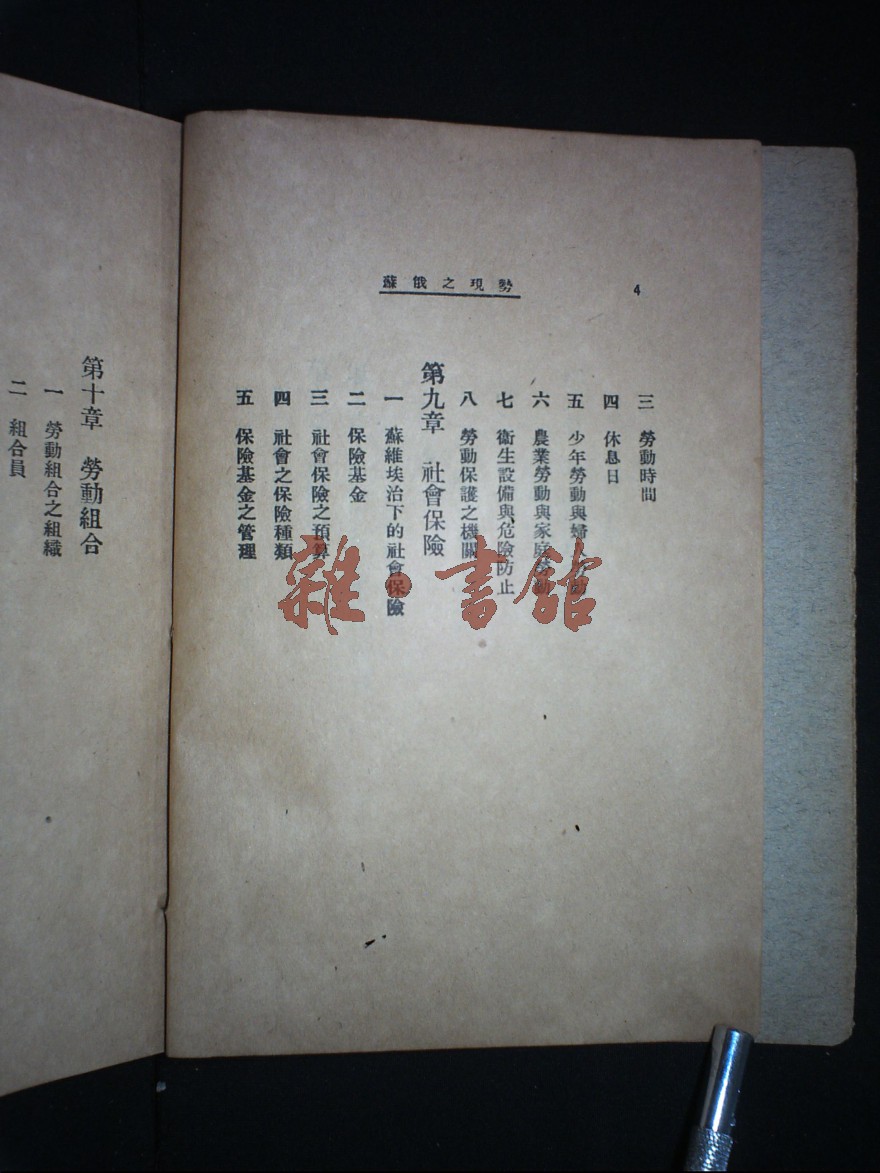 蘇俄之現勢
4
三 勞動時間
四 休息日
五 少年勞動與婦
六 農業勞動與家庭勞動
七 衞生設備與危險防止
八 勞動保護之機關
第九章 社會保險
一 蘇維埃治下的社會保險
二 保險基金
三 社會保險之預算
四 社會之保險種類
五 保險基金之管理
第十章 勞動組合
一 勞動組合之組織
二 組合員
雜·書館